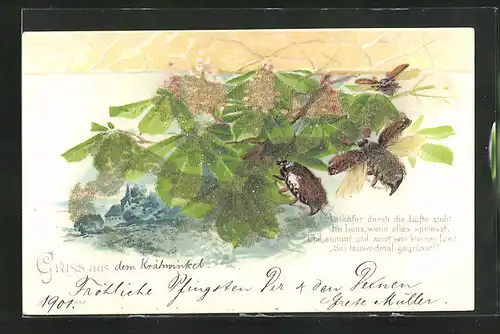 Maikäfer durch die Lüfte zieht
Im Lenz, wenn alles spriesst,
Und summt und surrt sein kleines Lied
„Sei tausendmal gegrüsst!“
Gruss aus dem Krähwinkel.
Fröhliche Pfingsten Dir & den Deinen
1901.
Grete Müller.